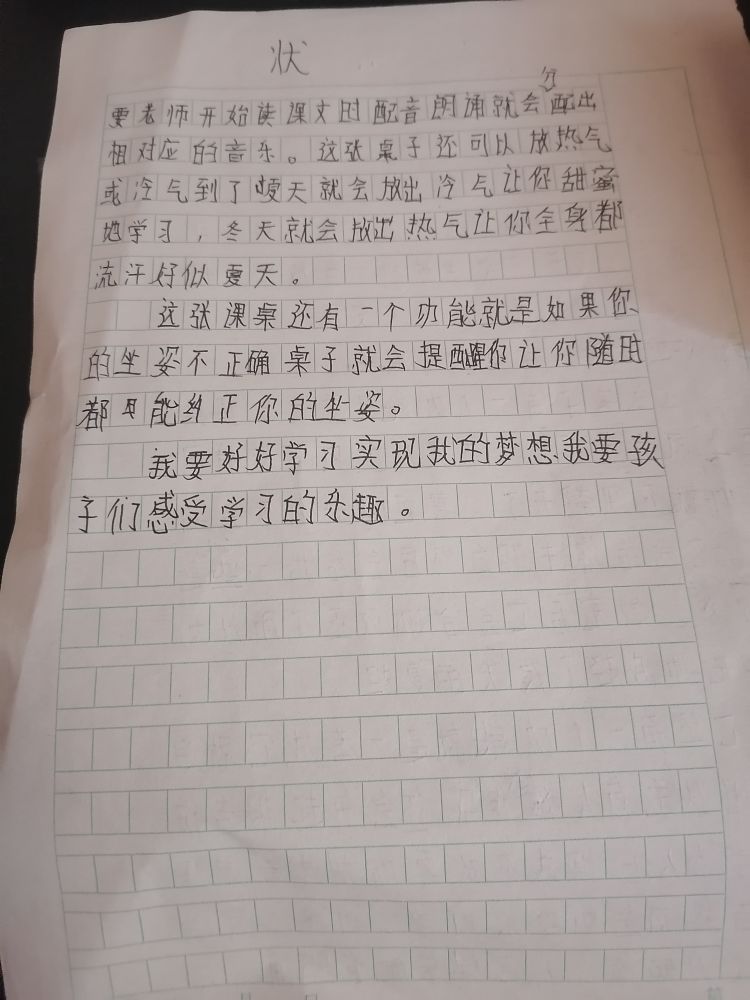 状
分
要老师开始读课文时配音朗诵就会配出
相对应的音乐。这张桌子还可以放热气
或冷气到了夏天就会放出冷气让你甜蜜
地学习，冬天就会放出热气让你全身都
流汗好似夏天。
这张课桌还有一个功能就是如果你
的坐姿不正确桌子就会提醒你让你随时
都能纠正你的坐姿。
我要好好学习实现我的梦想我要孩
子们感受学习的乐趣。